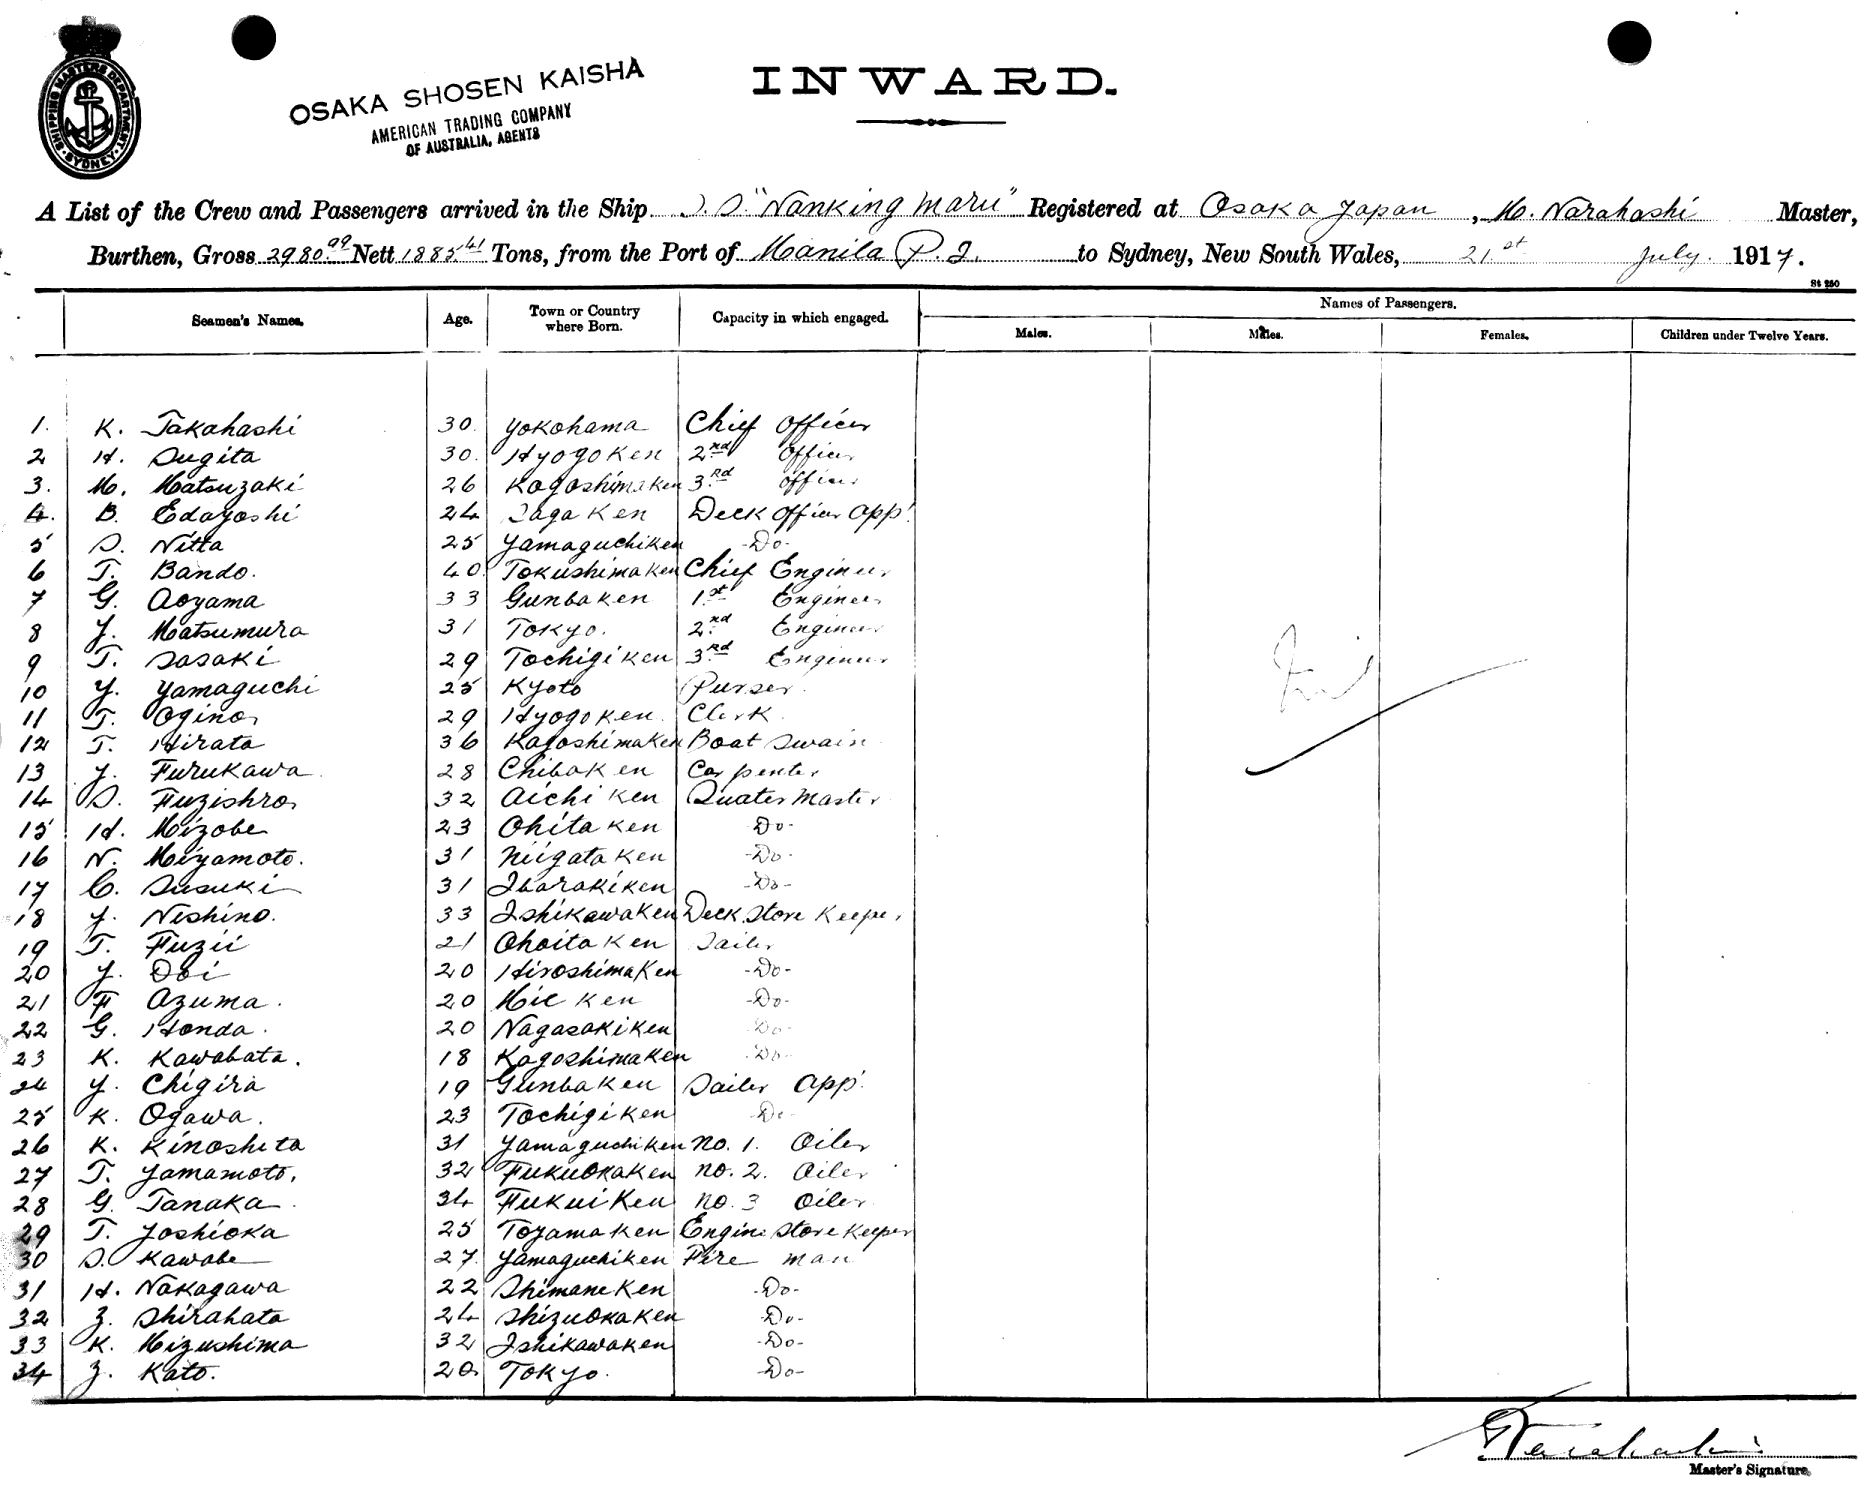 SHIPPING MASTERS DEPARTMENT
SYDNEY
OSAKA SHOSEN KAISHA
AMERICAN TRADING COMPANY
OF AUSTRALIA, AGENTS
INWARD.
A List of the Crew and Passengers arrived in the Ship S.S. "Nanking Maru" Registered at Osaka Japan, M. Narahashi Master,
Burthen, Gross 2980.99 Nett 1885.41 Tons, from the Port of Manila P.I. to Sydney, New South Wales, 21st July 1917.
St 250
Seamen's Names. Age. Town or Country where Born. Capacity in which engaged. Names of Passengers.
Males. Males. Females. Children under Twelve Years.
1. K. Takahashi 30. Yokohama Chief Officer
2 H. Sugita 30. Hyogo Ken 2nd Officer
3. M. Matsuzaki 26 Kagoshima Ken 3rd Officer
4. B. Edayoshi 24 Saga Ken Deck Officer App.
5 S. Nitta 25 Yamaguchiken -Do-
6 T. Bando. 40. Tokushimaken Chief Engineer
7 G. Aoyama 33 Gunbaken 1st Engineer
8 Y. Matsumura 31 Tokyo. 2nd Engineer
9 T. Sasaki 29 Tochigiken 3rd Engineer
10 Y. Yamaguchi 25 Kyoto Purser.
11 T. Ogino 29 Hyogoken. Clerk.
12 T. Hirata 36 Kagoshimaken Boat Swain
13 Y. Furukawa 28 Chibaken Carpenter
14 S. Fuzishro 32 Aichi Ken Quater Master
15 H. Mizobe 23 Ohita Ken -Do-
16 N. Miyamoto. 31 Niigata Ken -Do-
17 C. Susuki 31 Ibarakiken -Do-
18 Y. Nishino. 33 Ishikawaken Deck Store Keeper
19 T. Fuzii 21 Ohoita Ken Sailer
20 Y. Doi 20 Hiroshimaken -Do-
21 F Azuma. 20 Mie Ken -Do-
22 G. Honda. 20 Nagasakiken -Do-
23 K. Kawabata. 18 Kagoshimaken -Do-
24 Y. Chigira 19 Gunbaken Sailer App.
25 K. Ogawa. 23 Tochigiken -Do-
26 K. Kinoshita 31 Yamaguchiken No. 1. Oiler
27 T. Yamamoto. 32 Fukuokaken No. 2. Oiler
28 G. Tanaka. 34 Fukuiken No. 3 Oiler
29 T. Yoshioka 25 Toyamaken Engine Store Keeper
30 S. Kawabe 27. Yamaguchiken Fire man
31 H. Nakagawa 22 Shimaneken -Do-
32 Z. Shirahata 24 Shizuokaken -Do-
33 K. Mizushima 32 Ishikawaken -Do-
34 Z. Kato. 20. Tokyo. -Do-
Master's Signature